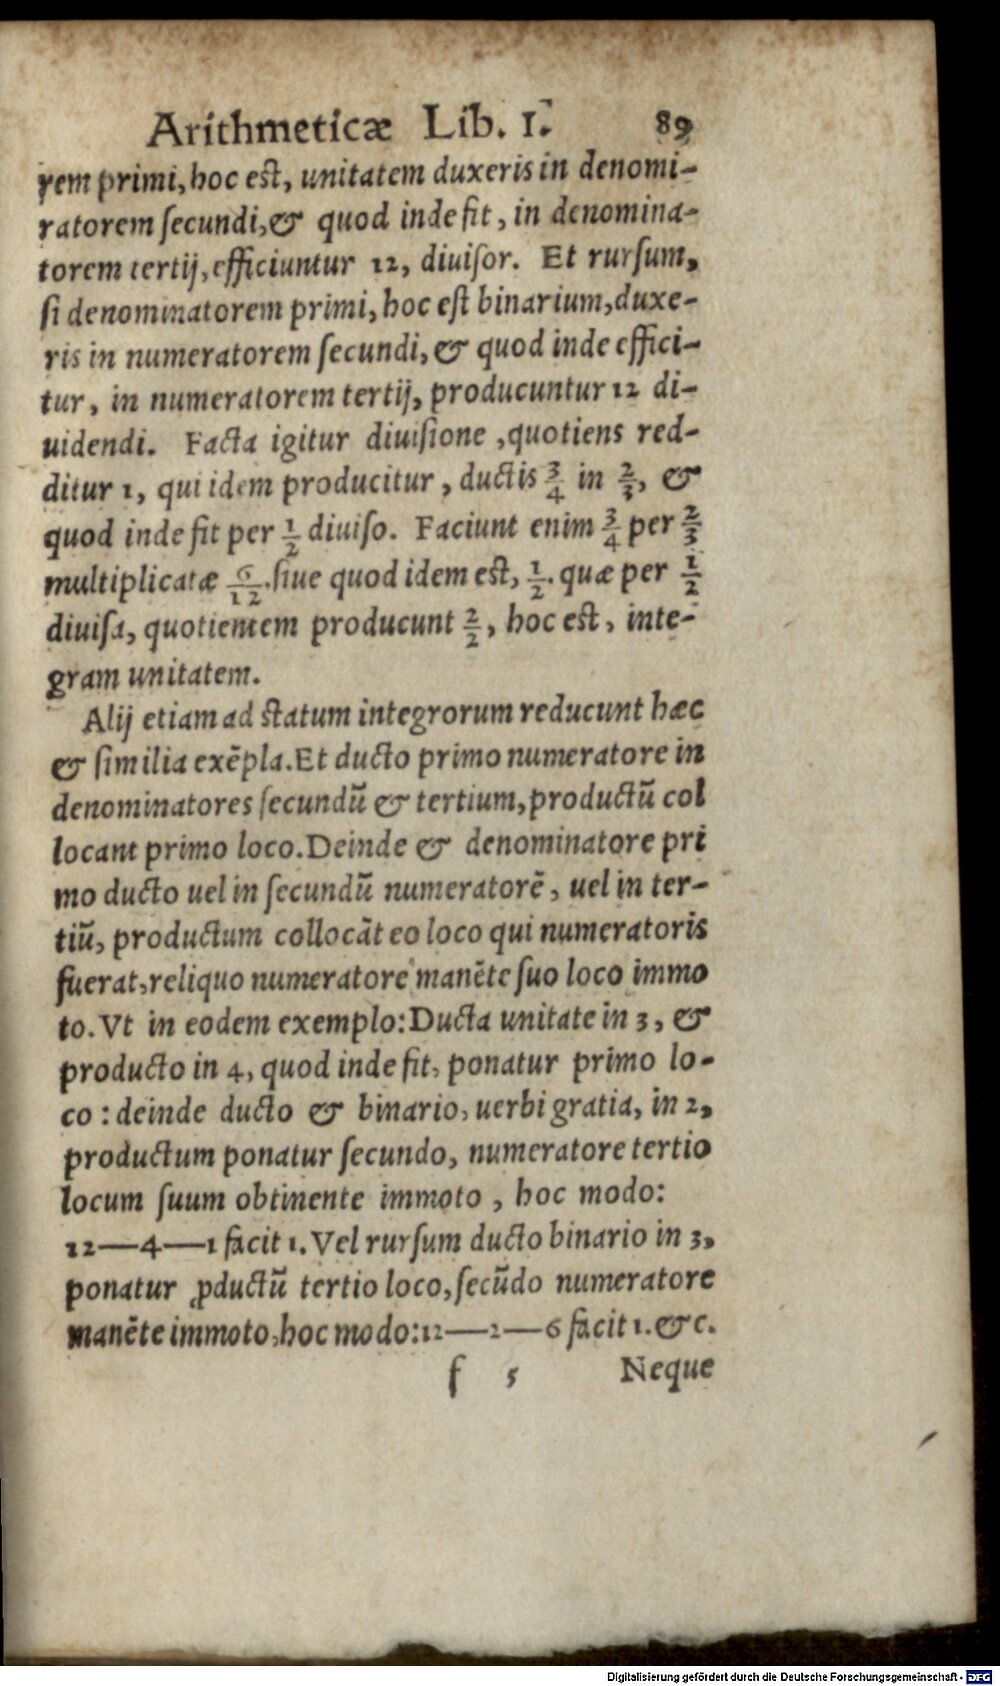 Arithmeticæ Lib. I. 89
rem primi, hoc est, unitatem duxeris in denomi-
ratorem secundi, & quod inde fit, in denomina-
torem tertij, efficiuntur 12, diuisor. Et rursum,
si denominatorem primi, hoc est binarium, duxe-
ris in numeratorem secundi, & quod inde effici-
tur, in numeratorem tertij, producuntur 12 di-
uidendi. Facta igitur diuisione, quotiens red-
ditur 1, qui idem producitur, ductis 3/4 in 2/3, &
quod inde fit per 1/2 diuiso. Faciunt enim 3/4 per 2/3
multiplicatæ 6/12. siue quod idem est, 1/2. quæ per 1/2
diuisa, quotientem producunt 2/2, hoc est, inte-
gram unitatem.
Alij etiam ad statum integrorum reducunt hæc
& similia exẽpla. Et ducto primo numeratore in
denominatores secundũ & tertium, productũ col
locant primo loco. Deinde & denominatore pri
mo ducto uel in secundũ numeratorẽ, uel in ter-
tiũ, productum collocãt eo loco qui numeratoris
fuerat, reliquo numeratore manẽte suo loco immo
to. Vt in eodem exemplo: Ducta unitate in 3, &
producto in 4, quod inde fit, ponatur primo lo-
co: deinde ducto & binario, uerbi gratia, in 2,
productum ponatur secundo, numeratore tertio
locum suum obtinente immoto, hoc modo:
12—4—1 facit 1. Vel rursum ducto binario in 3,
ponatur ꝓductũ tertio loco, secũdo numeratore
manẽte immoto, hoc modo: 12—2—6 facit 1. &c.
f 5 Neque
Digitalisierung gefördert durch die Deutsche Forschungsgemeinschaft - DFG